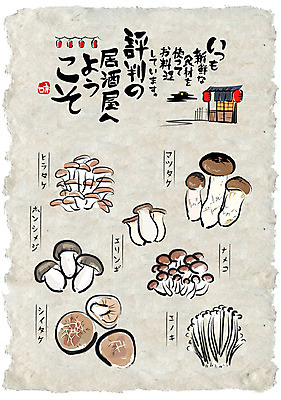 いつも
新鮮な
食材を
使って
お料理
しています。
評判の
居酒屋へ
よう
こそ
ヒラタケ
マツタケ
ホンシメジ
エリンギ
ナメコ
シイタケ
エノキ